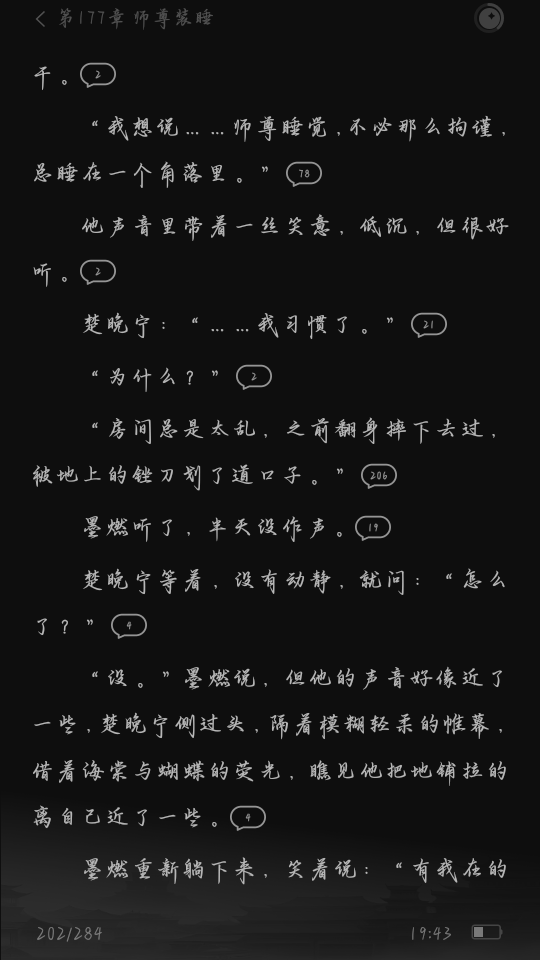 第177章 师尊装睡
干。2
“我想说……师尊睡觉，不必那么拘谨，
总睡在一个角落里。”78
他声音里带着一丝笑意，低沉，但很好
听。2
楚晚宁：“……我习惯了。”21
“为什么？”2
“房间总是太乱，之前翻身摔下去过，
被地上的锉刀划了道口子。”206
墨燃听了，半天没作声。19
楚晚宁等着，没有动静，就问：“怎么
了？”4
“没。”墨燃说，但他的声音好像近了
一些，楚晚宁侧过头，隔着模糊轻柔的帷幕，
借着海棠与蝴蝶的荧光，瞧见他把地铺拉的
离自己近了一些。4
墨燃重新躺下来，笑着说：“有我在的
202/284
19:43